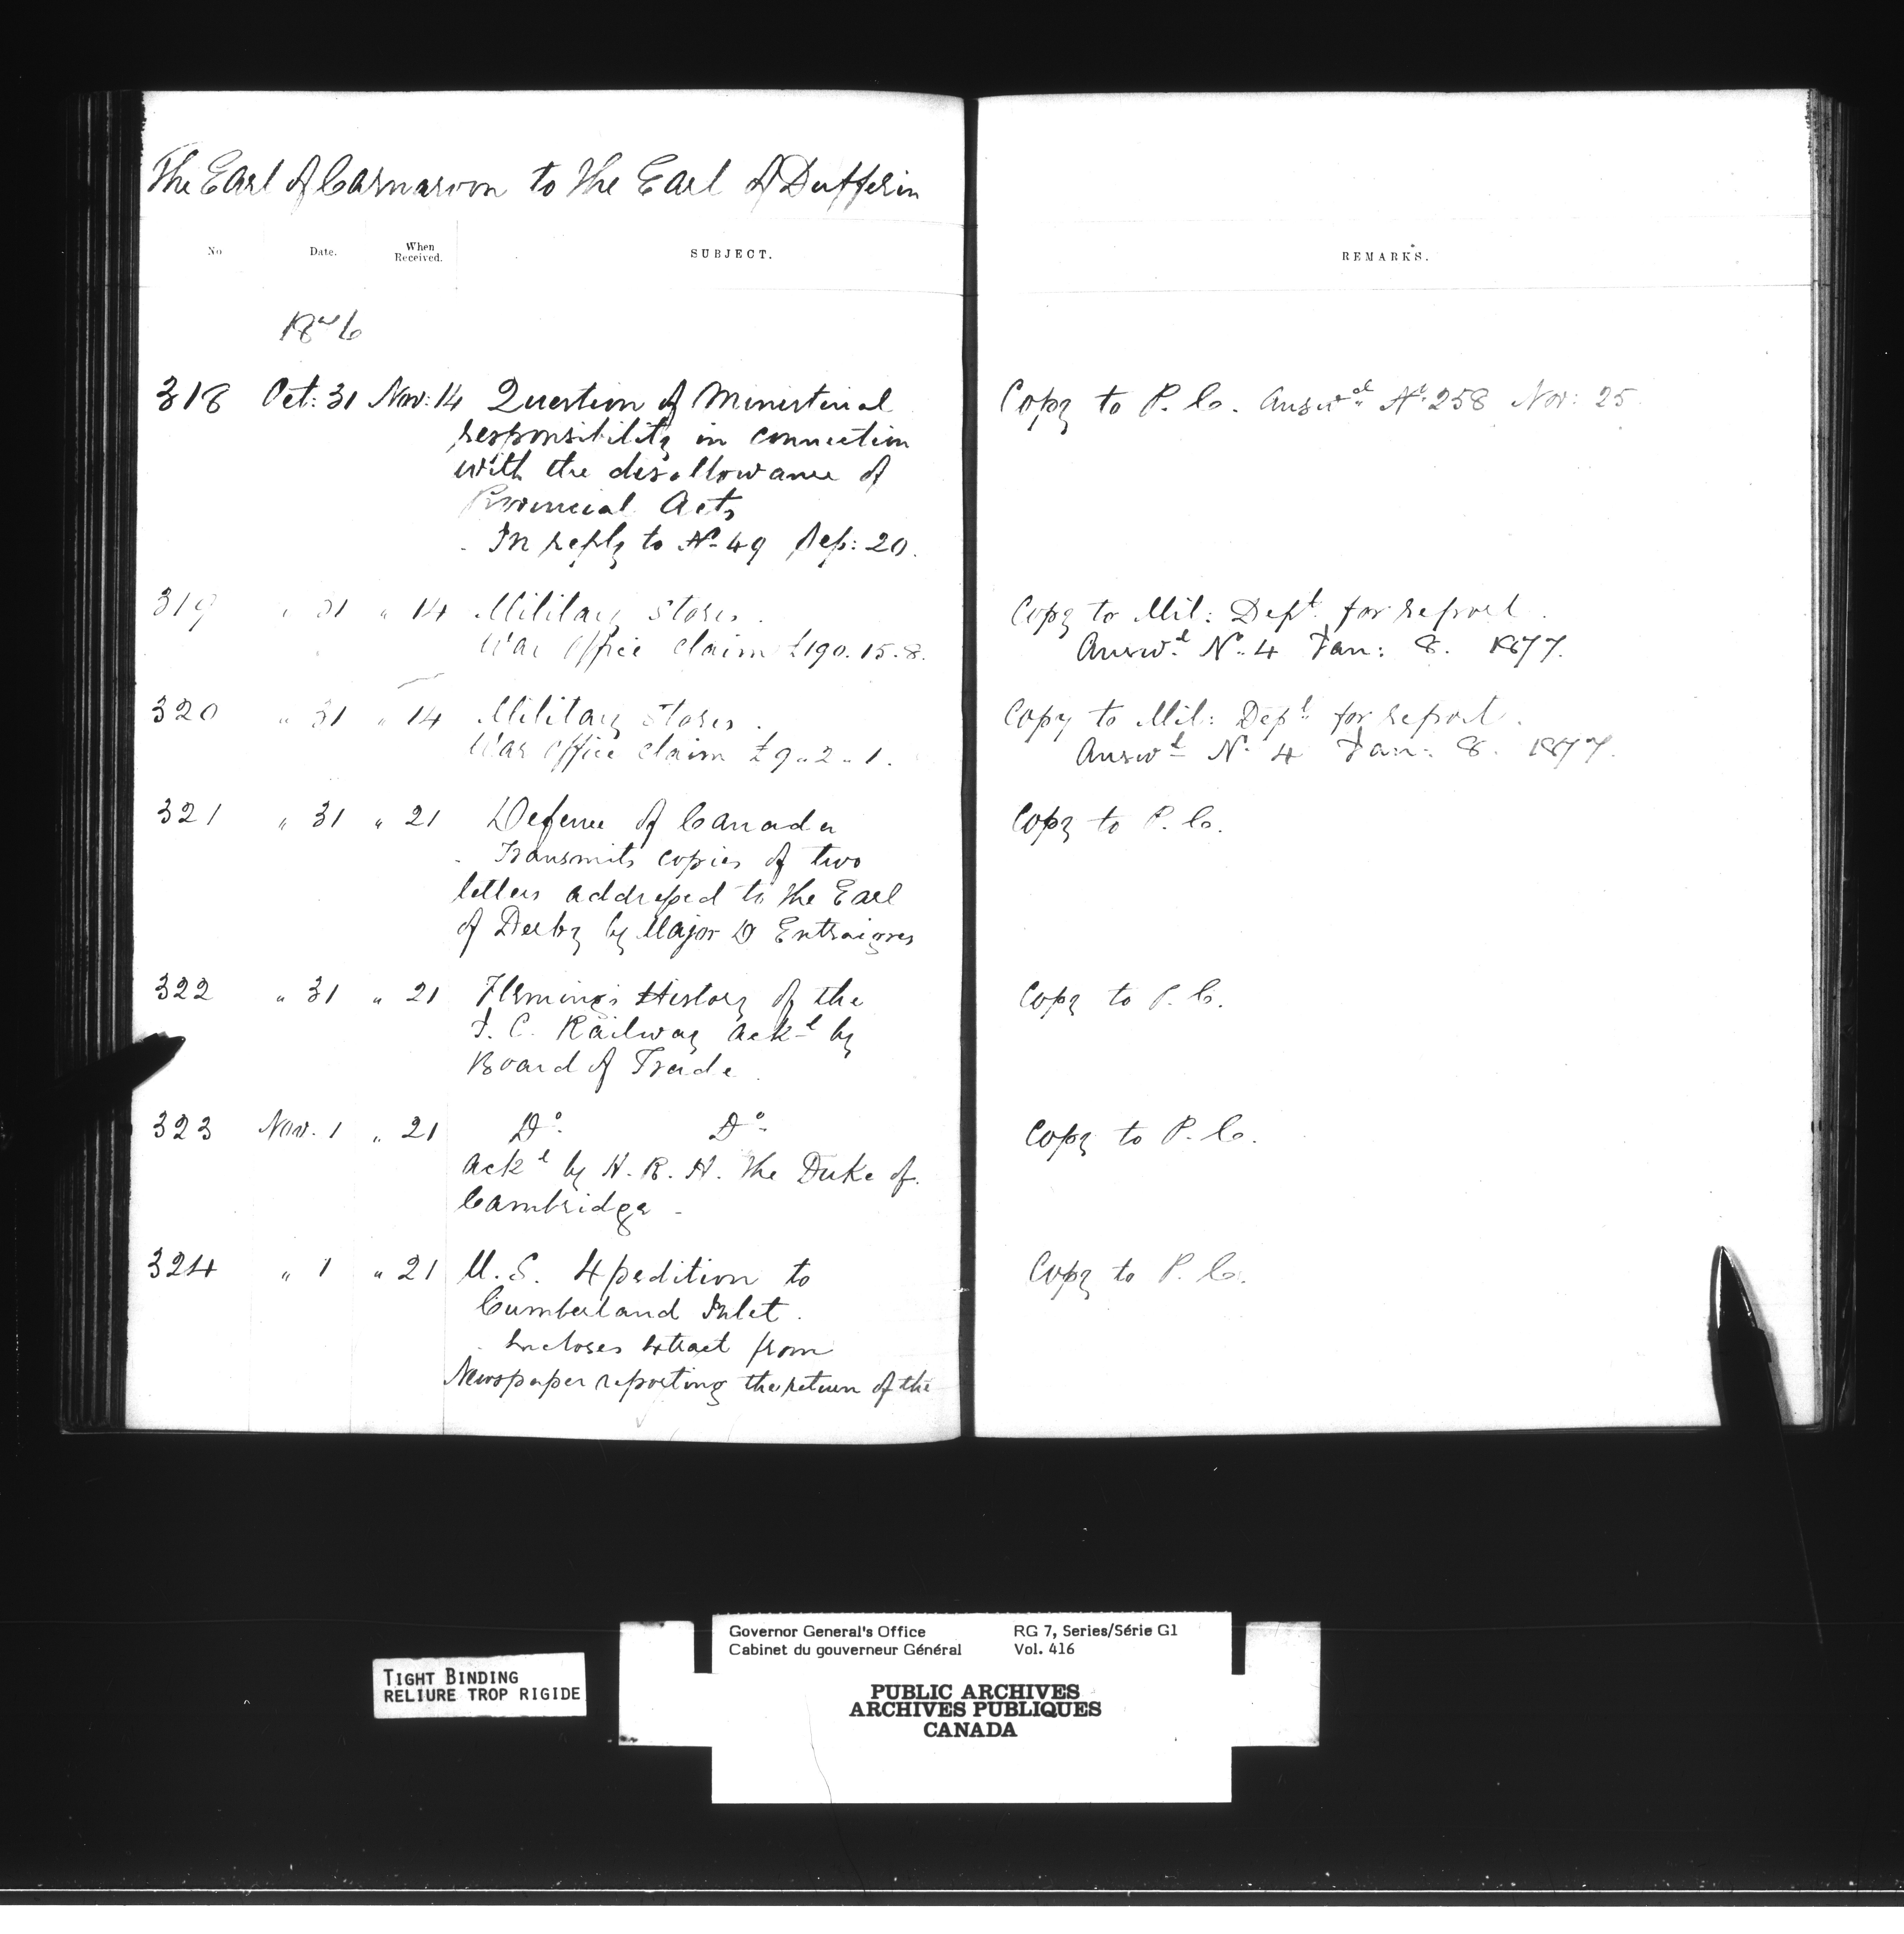 The Earl of Carnarvon to the Earl of Dufferin
No Date. When Received. SUBJECT. REMARKS.
1876
318 Oct: 31 Nov: 14 Question of Ministerial Copy to P. C. Answd. No. 258 Nov: 25
responsibility in connection
with the disallowance of
Provincial Acts
In reply to No. 49 Sep: 20.
319 " 31 " 14 Military Stores. Copy to Mil: Dept. for report.
War Office claim £190.15.8. Answd. No. 4 Jan: 8. 1877.
320 " 31 " 14 Military Stores. Copy to Mil: Dept. for report.
War Office claim £9.2.1. Answd. No. 4 Jan: 8. 1877.
321 " 31 " 21 Defence of Canada Copy to P. C.
Transmits copies of two
letters addressed to the Earl
of Derby by Major D Entraigues
322 " 31 " 21 Fleming's History of the Copy to P. C.
I. C. Railway ackd by
Board of Trade
323 Nov. 1 " 21 Do. Do. Copy to P. C.
ackd by H. R. H. the Duke of
Cambridge -
324 " 1 " 21 U. S. Xpedition to Copy to P. C.
Cumberland Inlet.
Encloses Xtract from
Newspaper reporting the return of the
TIGHT BINDING
RELIURE TROP RIGIDE
Governor General's Office RG 7, Series/Série G1
Cabinet du gouverneur Général Vol. 416
PUBLIC ARCHIVES
ARCHIVES PUBLIQUES
CANADA